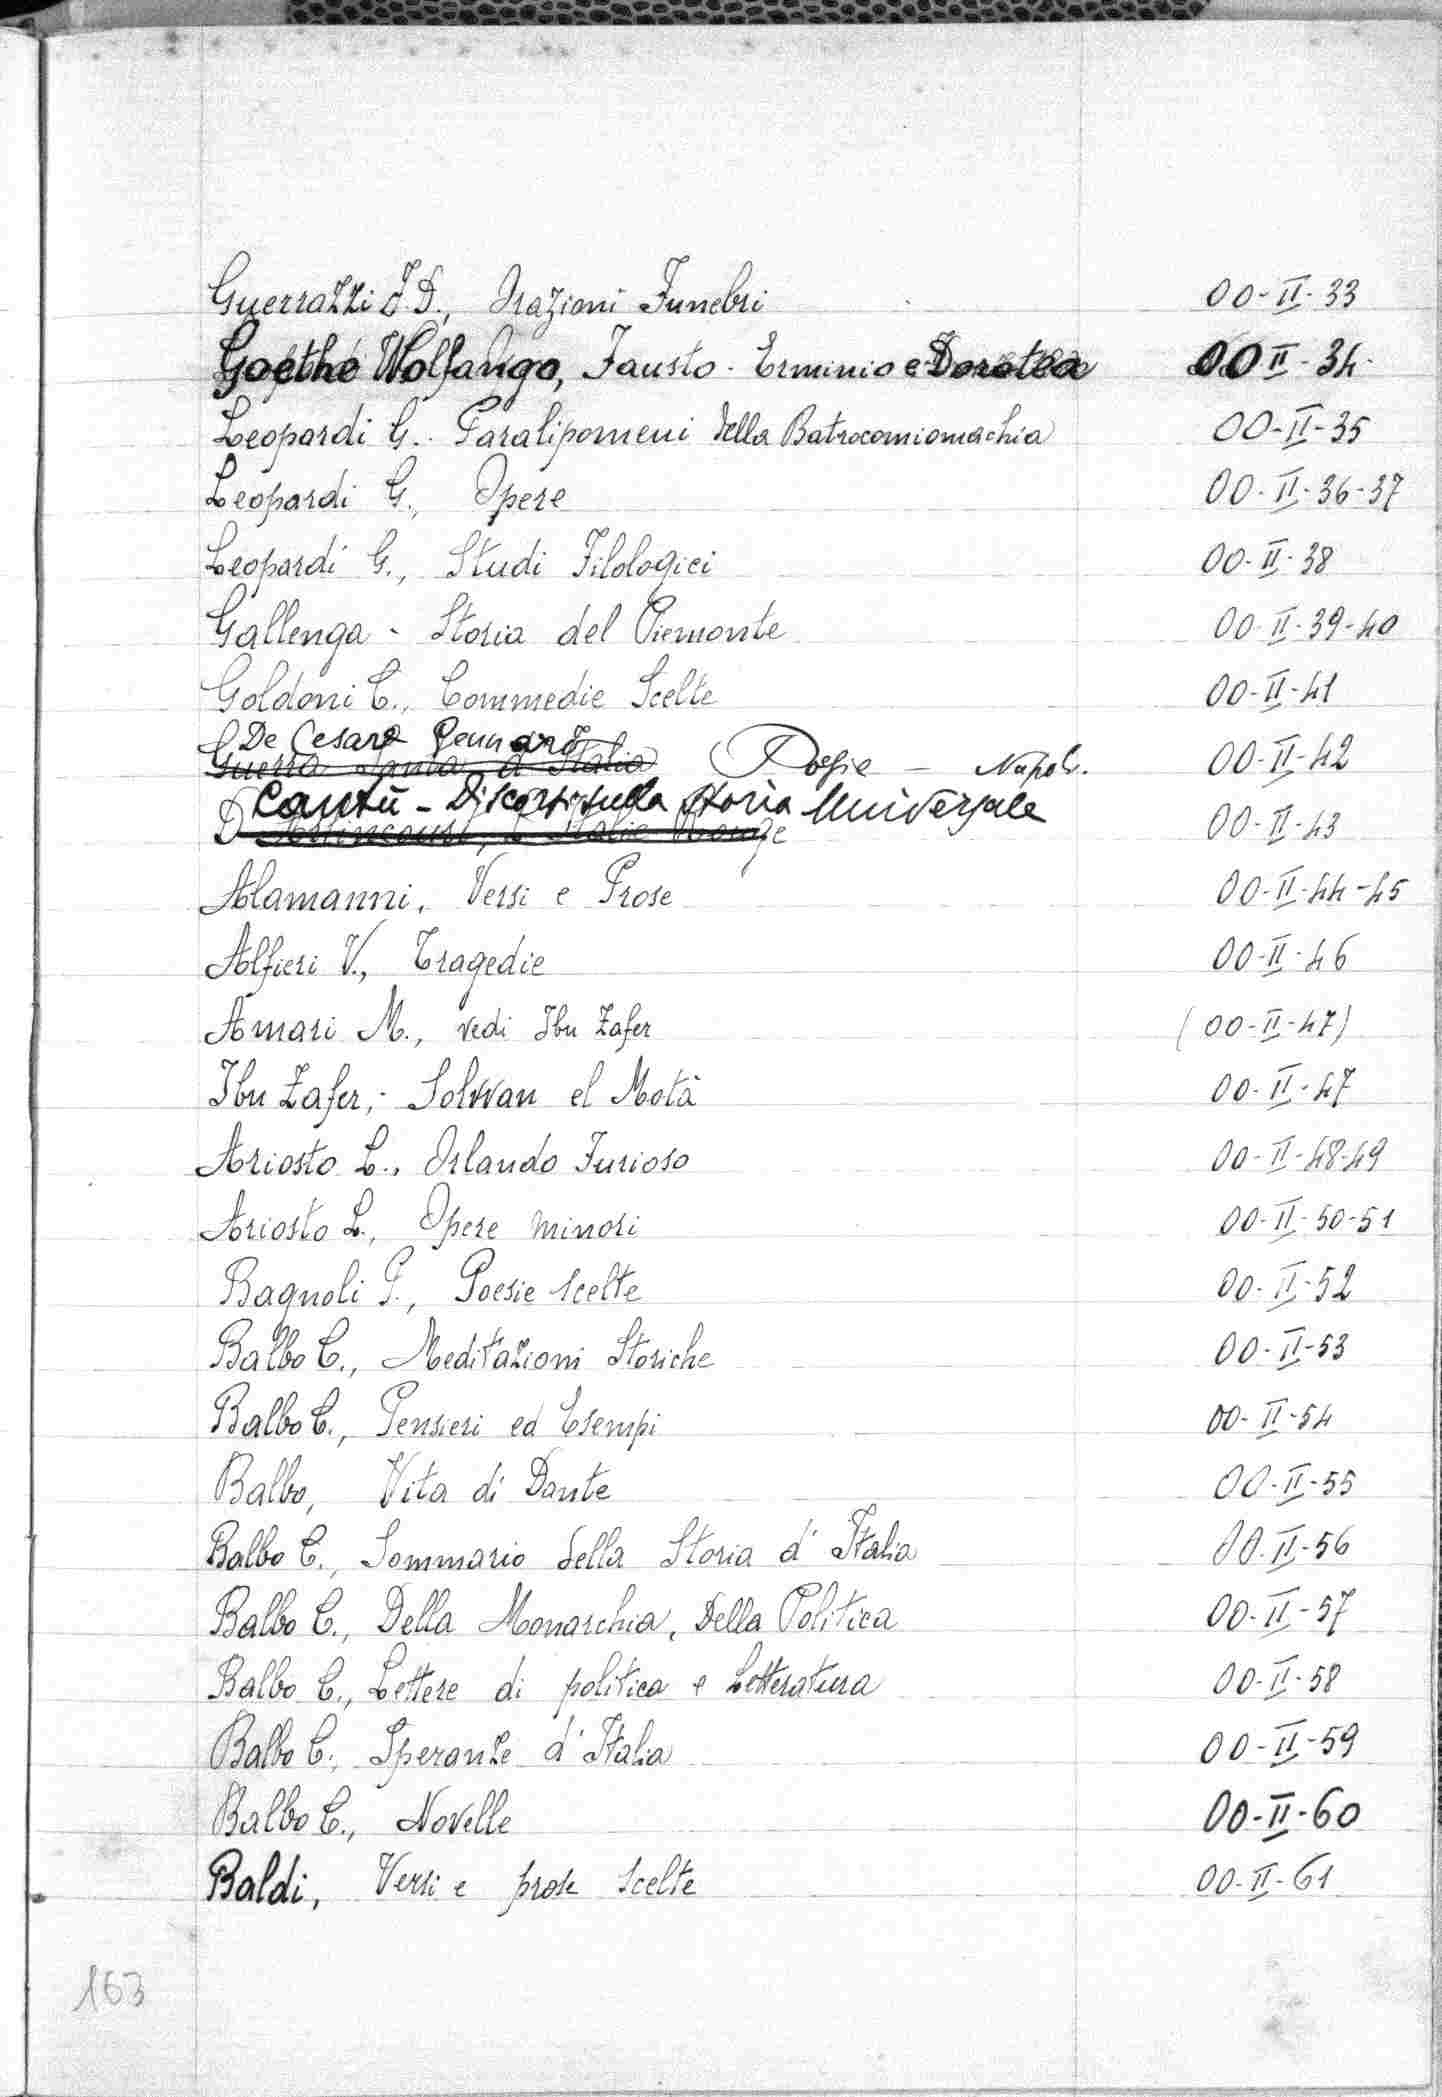 Guerrazzi F. D., Orazioni Funebri 00-II-33
Goethe Wolfango, Fausto - Erminio e Dorotea 00 II-34
Leopardi G. Paralipomeni della Batrocomiomachia 00-II-35
Leopardi G., Opere 00-II-36-37
Leopardi G., Studi Filologici 00-II-38
Gallenga - Storia del Piemonte 00-II-39-40
Goldoni C., Commedie Scelte 00-II-41
De Cesare Gennaro
Guerra Santa d'Italia Poesie - Napoli. 00-II-42
Cantù - Discorsi sulla Storia Universale
00-II-43
Alamanni, Versi e Prose 00-II-44-45
Alfieri V., Tragedie 00-II-46
Amari M., vedi Ibn Zafer (00-II-47)
Ibn Zafer,- Solwan el Motà 00-II-47
Ariosto L., Orlando Furioso 00-II-48-49
Ariosto L., Opere minori 00-II-50-51
Bagnoli P., Poesie scelte 00-II-52
Balbo C., Meditazioni Storiche 00-II-53
Balbo C., Pensieri ed Esempi 00-II-54
Balbo, Vita di Dante 00-II-55
Balbo C., Sommario della Storia d'Italia 00-II-56
Balbo C., Della Monarchia, Della Politica 00-II-57
Balbo C., Lettere di politica e Letteratura 00-II-58
Balbo C., Speranze d'Italia 00-II-59
Balbo C., Novelle 00-II-60
Baldi, Versi e prose scelte 00-II-61
163